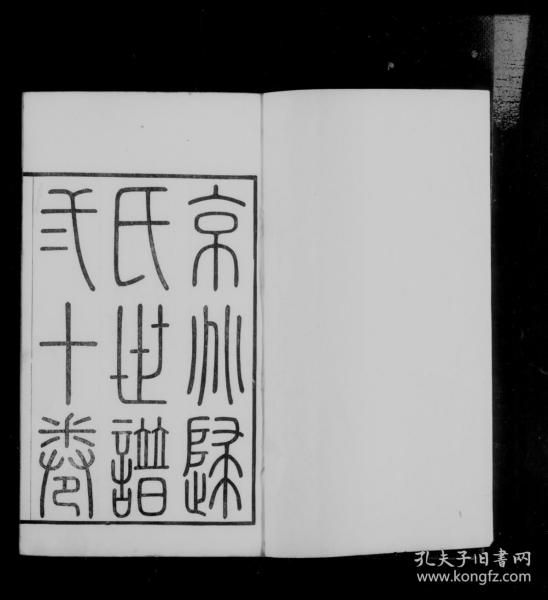 京兆歸
氏世譜
弎十卷
孔夫子旧书网
www.kongfz.com